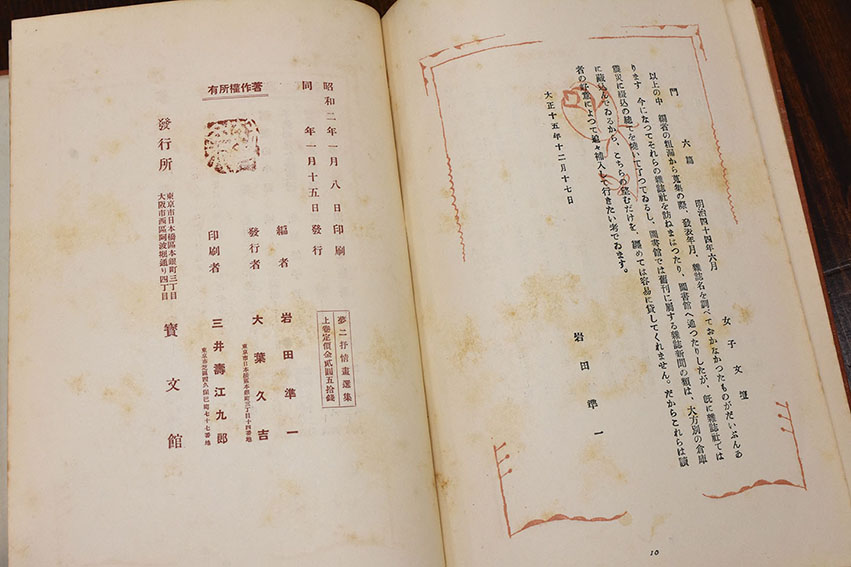 門　六篇　明治四十四年六月　女子文壇
以上の中　編者の粗漏から蒐集の際、發表年月、雜誌名を調べておかなかつたものがだいぶんあ
ります　今になつてそれらの雜誌社を訪ねまはつたり、圖書館へ通つたりしたが、既に雜誌社では
震災に殘込の總てを燒いて了つてゐるし、圖書館では舊刊に屬する雜誌新聞の類は、大方別の倉庫
に藏込んでゐるから、こちらの望むだけを、纏めては容易に貸してくれません。だからこれらは讀
者の好意によつて追々補入して行きたい考でゐます。
大正十五年十二月十七日
岩田準一
10
昭和二年一月八日印刷
同　年一月十五日發行
夢二抒情畫選集
上卷定價金貳圓五拾錢
編者　岩田準一
發行者　大葉久吉
東京市日本橋區本銀町三丁目十四番地
印刷者　三井壽江九郎
東京市芝區西久保巴町七十七番地
著作權所有
發行所　東京市日本橋區本銀町三丁目
大阪市西區阿波堀通り四丁目
寶文館